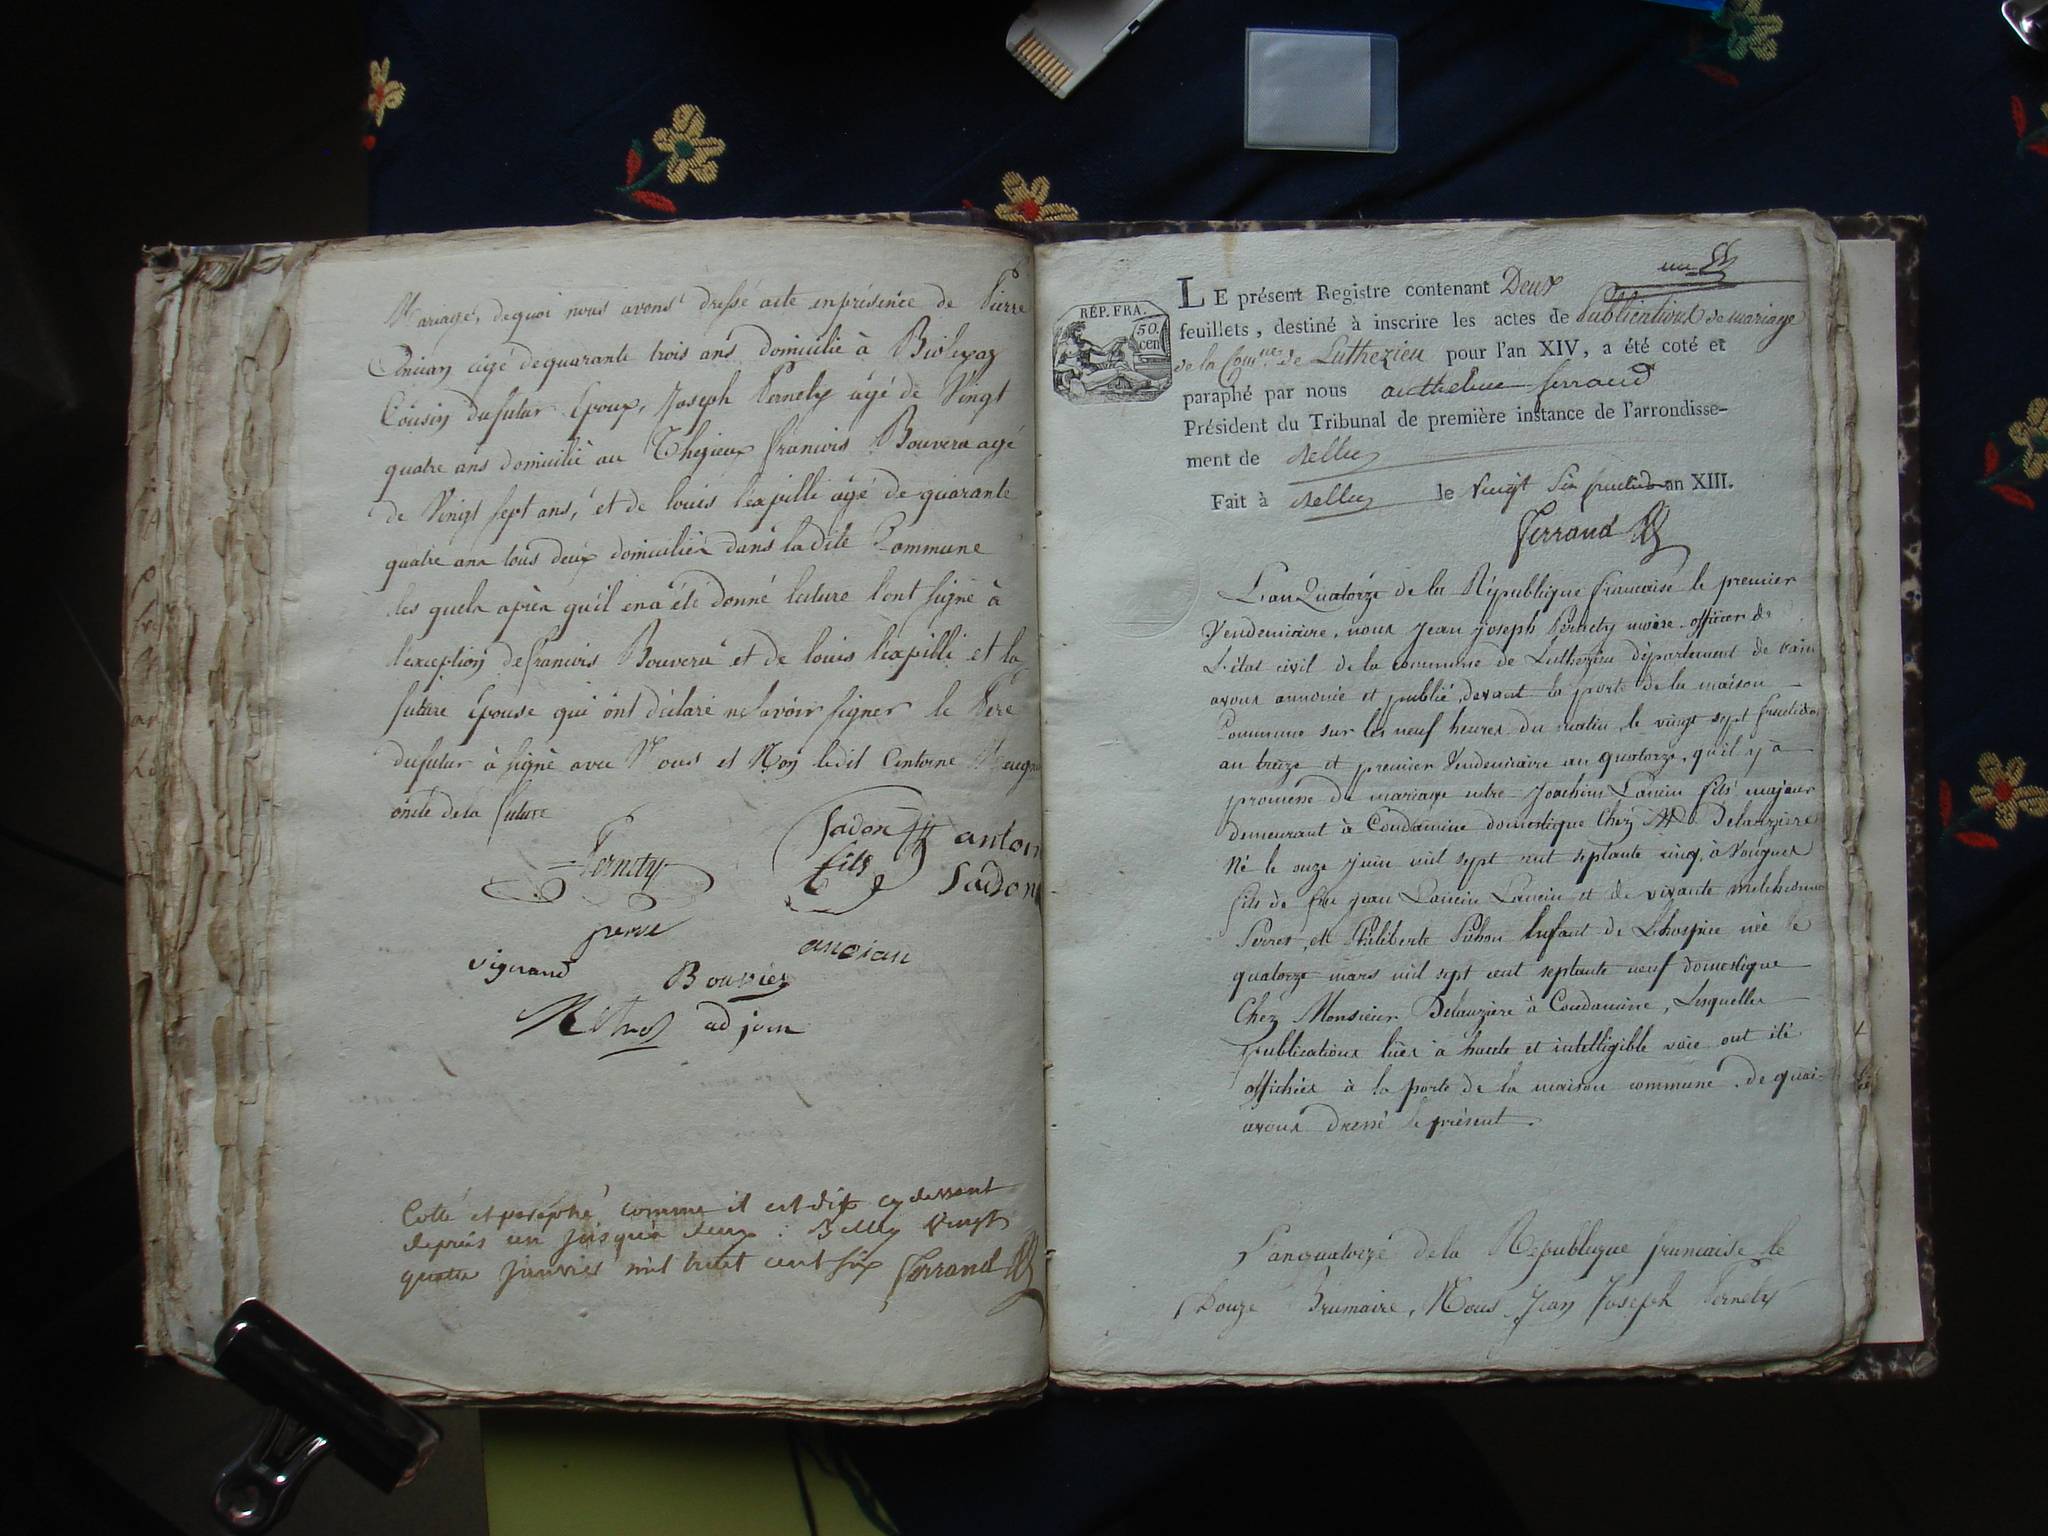 Mariage, dequoi nous avons dressé acte en présence de Pierre
Ancian âgé dequarante trois ans domicilié à Bioleyaz
Cousin dufutur Epoux, Joseph Pernety âgé de Vingt
quatre ans domicilié au francois Bouvera agé
de Vingt sept ans, et de louis léxpilli âgé de quarante
quatre ans tous deux domiciliés dans la dite Commune
les quels après qu'il en a été donné lecture l'ont signé à
l'exception de francois Bouvera et de louis léxpilli et la
future Epouse qui ont déclaré ne savoir signer le Pere
dufutur à signé avec Nous et Non ledit Antoine
oncle de la future
Pernety
Sadon fils
anton
Sadon
perne
ancian
vignand
Bouvier
adjoin
Cotté et paraphé comme il est dit cy dessant
depuis un jusqu'à deux : Belley Vingt
quatre janvier mil huit cent six Ferrand
un
RÉP. FRA.
50. cen
LE présent Registre contenant Deux
feuillets, destiné à inscrire les actes de Publications de mariage
de la Comune de Luthezieu pour l'an XIV, a été coté et
paraphé par nous anthelme ferrand
Président du Tribunal de première instance de l'arrondisse-
ment de Belley
Fait à Belley le Vingt Six fructidor an XIII.
Ferrand
L'an Quatorze de la République francaise le premier
Vendemiaire, nous Jean joseph Pernety maire officier de
L'état civil de la commune de Luthezieu département de l'ain
avons annoncé et publié, devant la porte de la maison
Commune sur les neuf heures du matin, le vingt sept fructidor
an treize et premier Vendemiaire an quatorze, qu'il y à
promesse de mariage entre Joachim Lancin fils majeur
demeurant à Condamine domestique Chez Mr Delauziere
Né le onze juin mil sept cent septante cinq, à Vougnes
fils de feu jean Lancin Lancin et de vivante
Perret, et Philiberte Enfant de L'hospice née le
quatorze mars mil sept cent septante neuf domestique
Chez Monsieur Delauziere à Condamine, Lesquelles
publications lües à haute et intelligible voie ont été
affichées à la porte de la maison commune. de quoi
avons dressé le présent.
L'an quatorze de la Republique francaise le
Douze Brumaire, Nous Jean Joseph Pernety